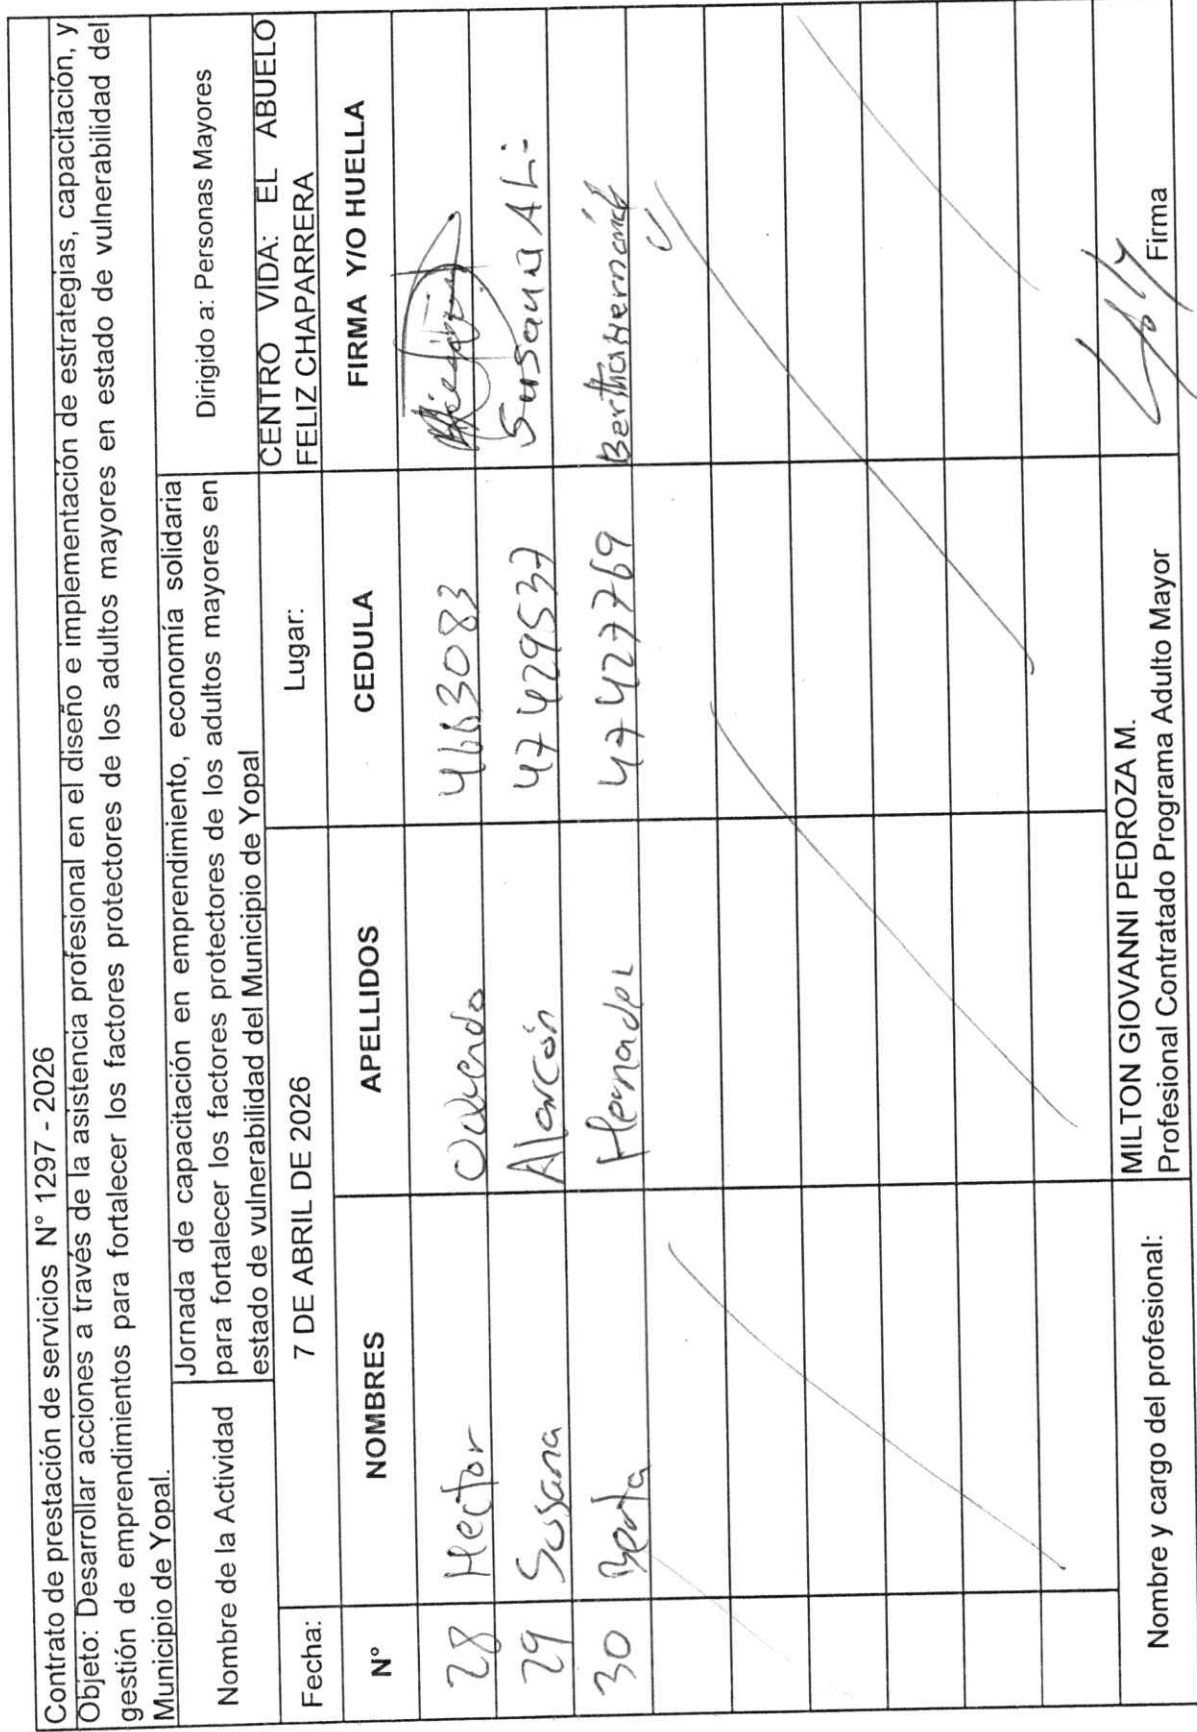 Contrato de prestación de servicios N° 1297 - 2026
Objeto: Desarrollar acciones a través de la asistencia profesional en el diseño e implementación de estrategias, capacitación, y
gestión de emprendimientos para fortalecer los factores protectores de los adultos mayores en estado de vulnerabilidad del
Municipio de Yopal.
Nombre de la Actividad
Jornada de capacitación en emprendimiento, economía solidaria
para fortalecer los factores protectores de los adultos mayores en
estado de vulnerabilidad del Municipio de Yopal
Dirigido a: Personas Mayores
Fecha: 7 DE ABRIL DE 2026 Lugar:
CENTRO VIDA: EL ABUELO
FELIZ CHAPARRERA
N° NOMBRES APELLIDOS CEDULA FIRMA Y/O HUELLA
28 Hector 4663083
29 Susana Alarcón 47429537 Susana Al-
30 Berta Hernadez 47427769 Bertha Hernández
Nombre y cargo del profesional:
MILTON GIOVANNI PEDROZA M.
Profesional Contratado Programa Adulto Mayor
Firma